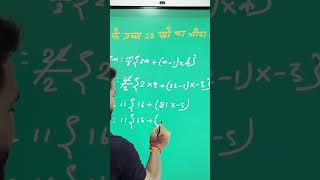 के प्रथम 22 पदों का योग
Sn = n/2 {2a + (n-1)×d}
= 22/2 {2×8 + (22-1)×-5}
= 11 {16 + (21×-5)
= 11 {16 + (